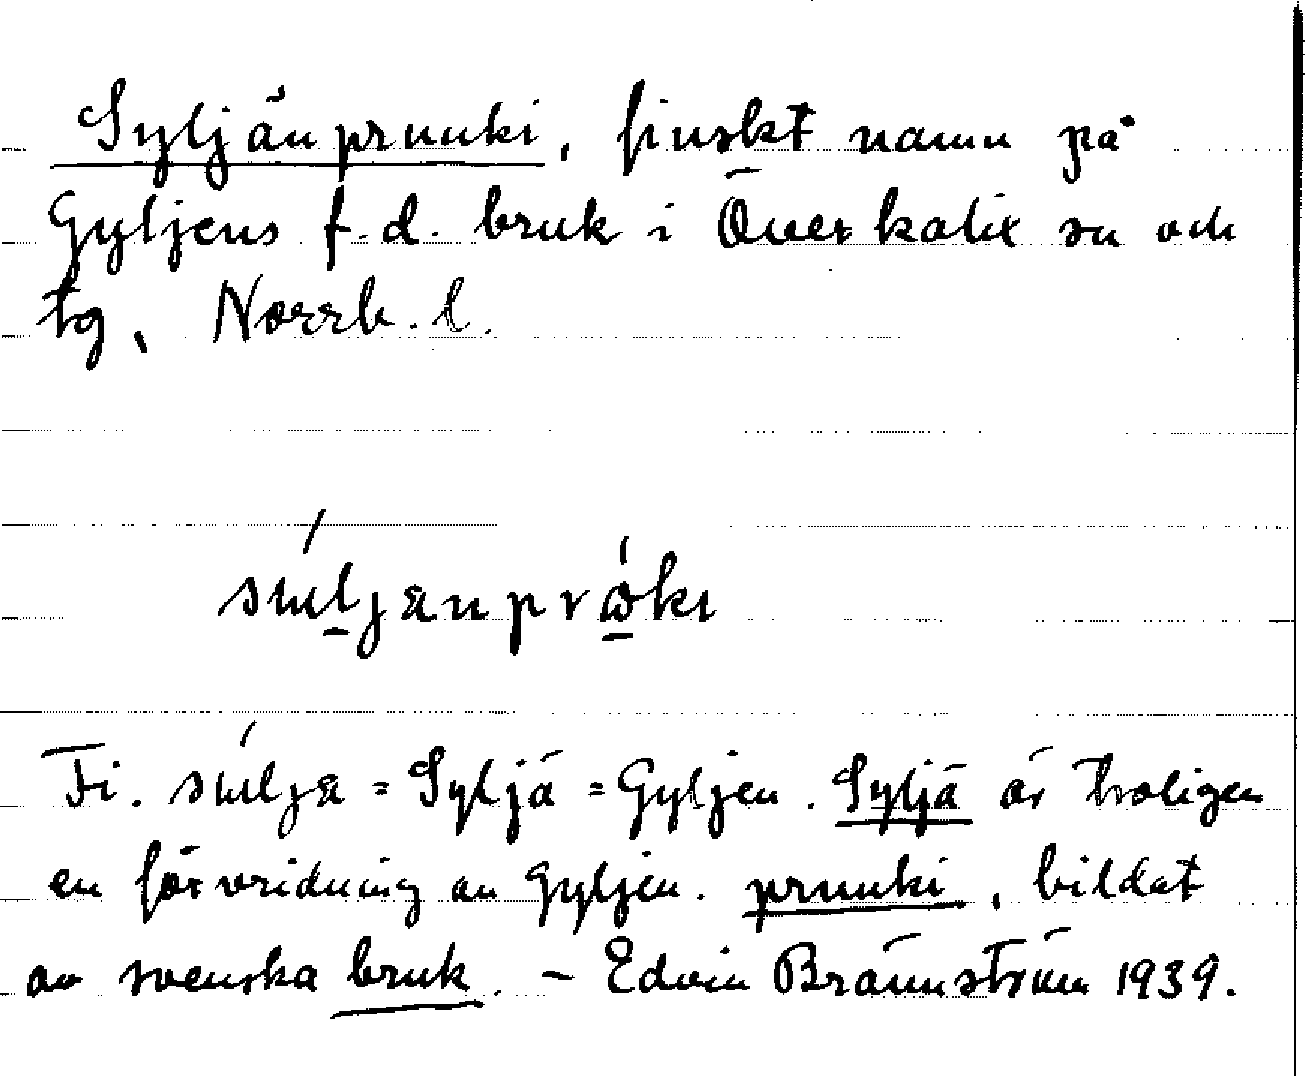 Syljänpruuki, finskt namn på
Gyljens f.d. bruk i Överkalix sn och
tg, Norrb. l.
Fi. = Syljä = Gyljen. Syljä är troligen
en förvridning av Gyljen. pruuki, bildat
av svenska bruk. – Edvin Brännström 1939.